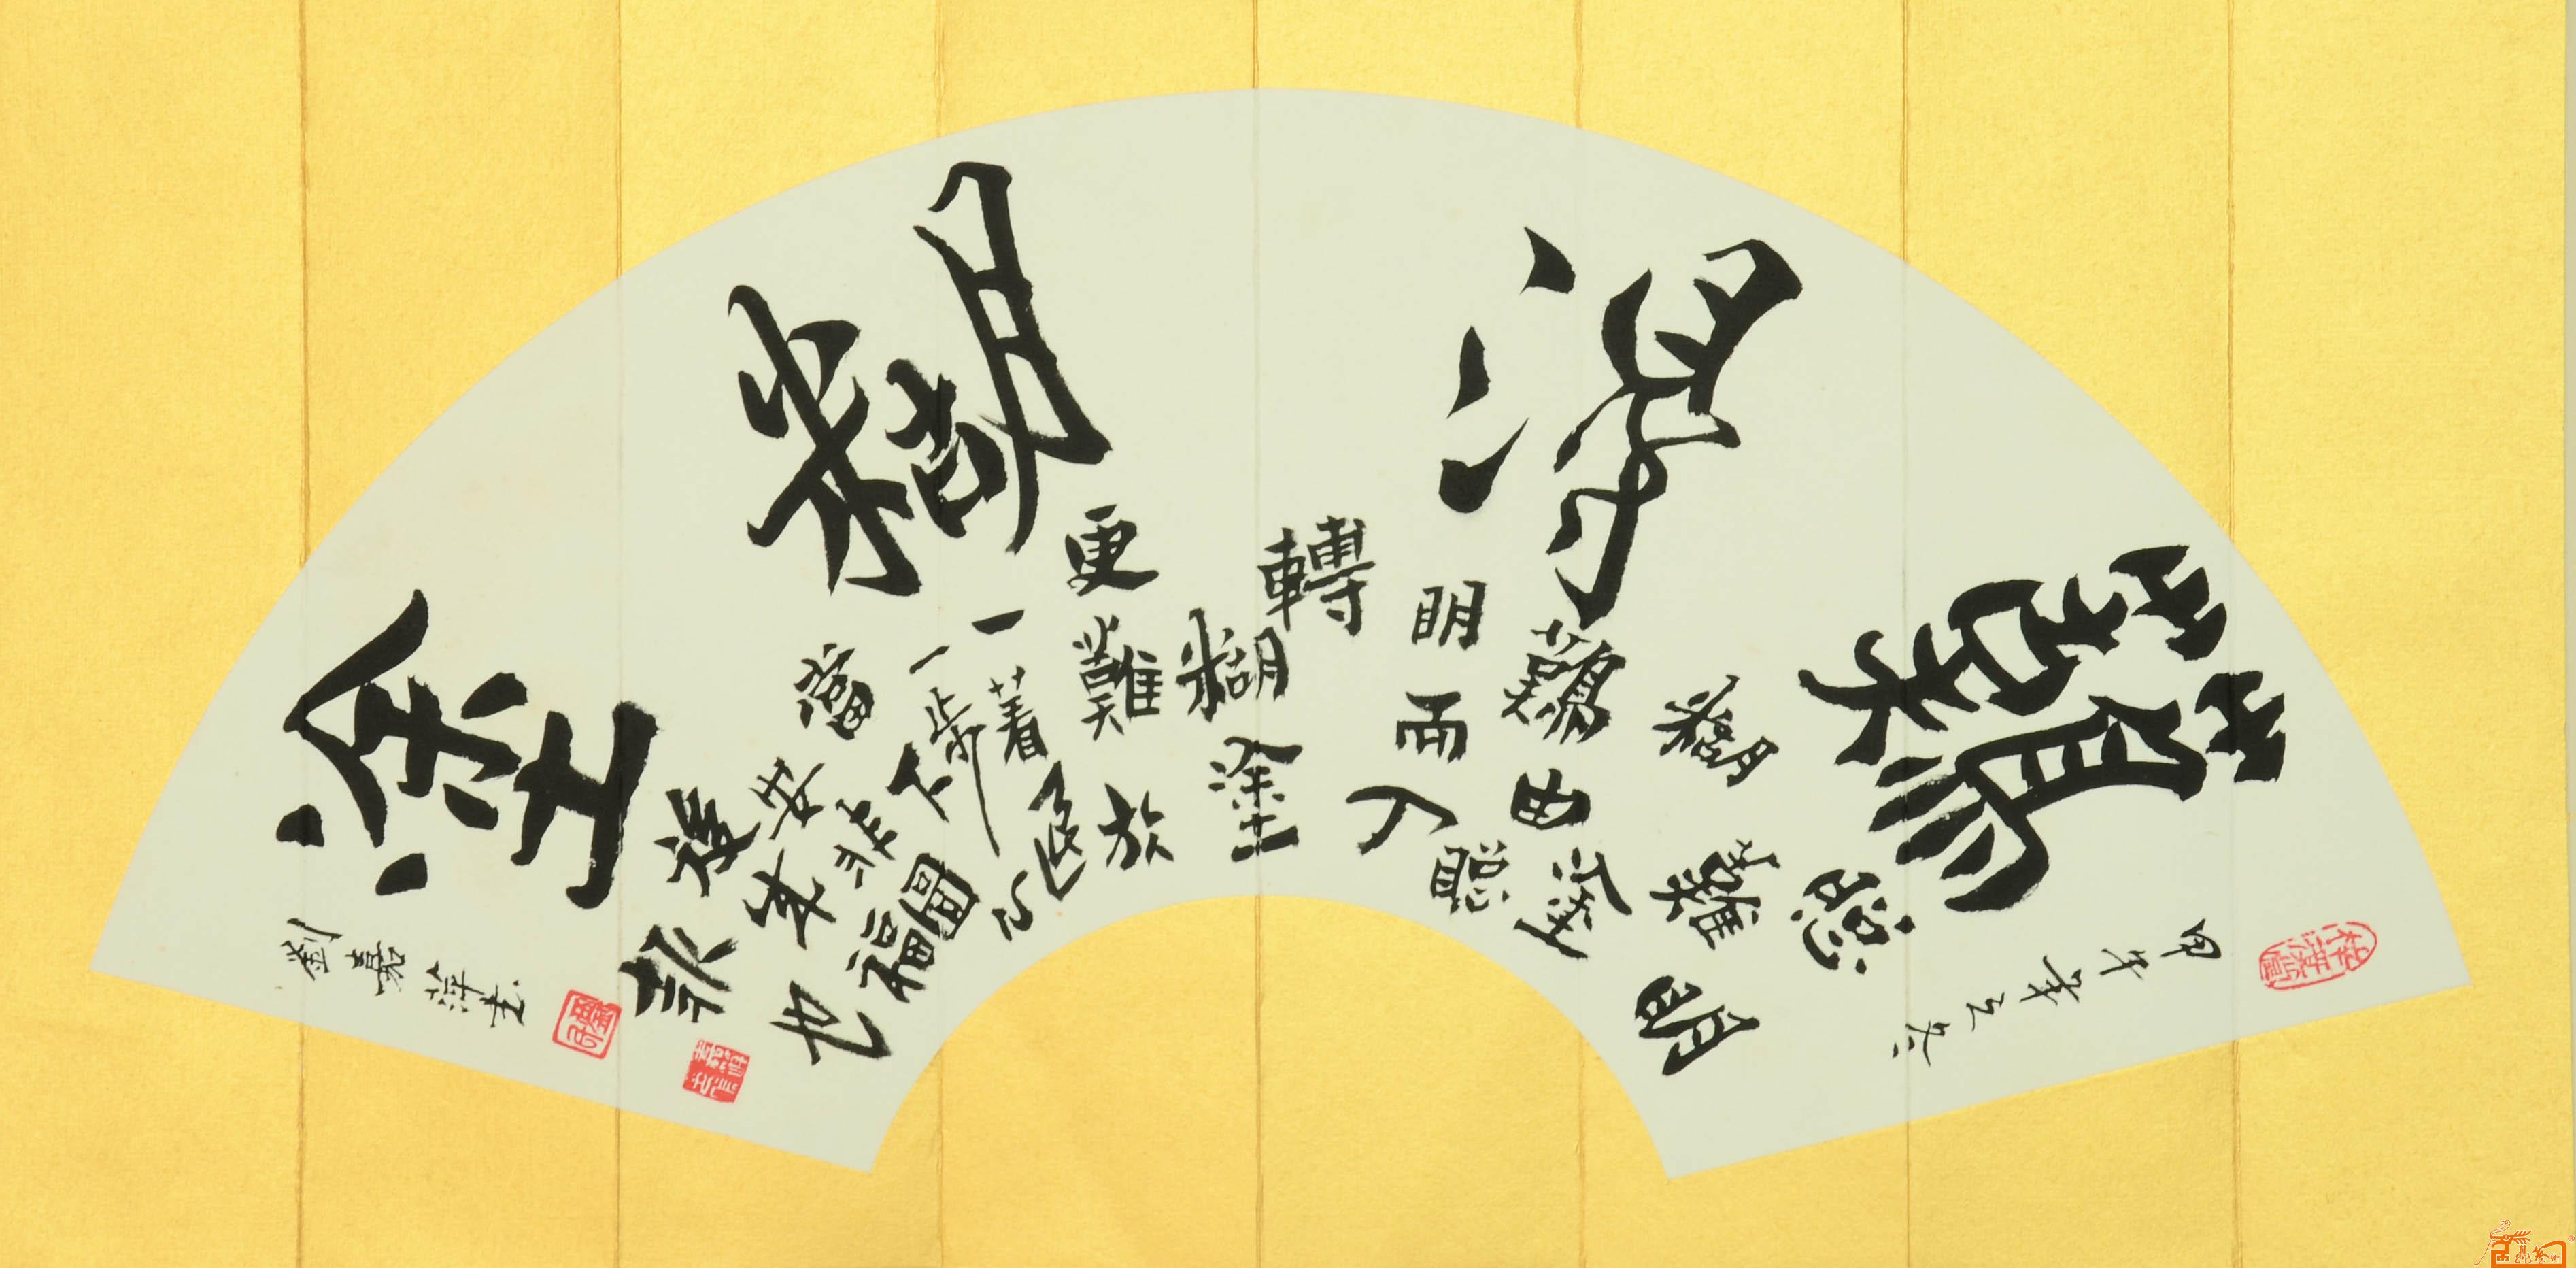 難得糊塗
甲午年立冬
聰明
難糊
塗難由聰
明而入
轉糊塗
更難放
一著退
一步下心
當安非圖
後來福
報也
劉嘉祥書